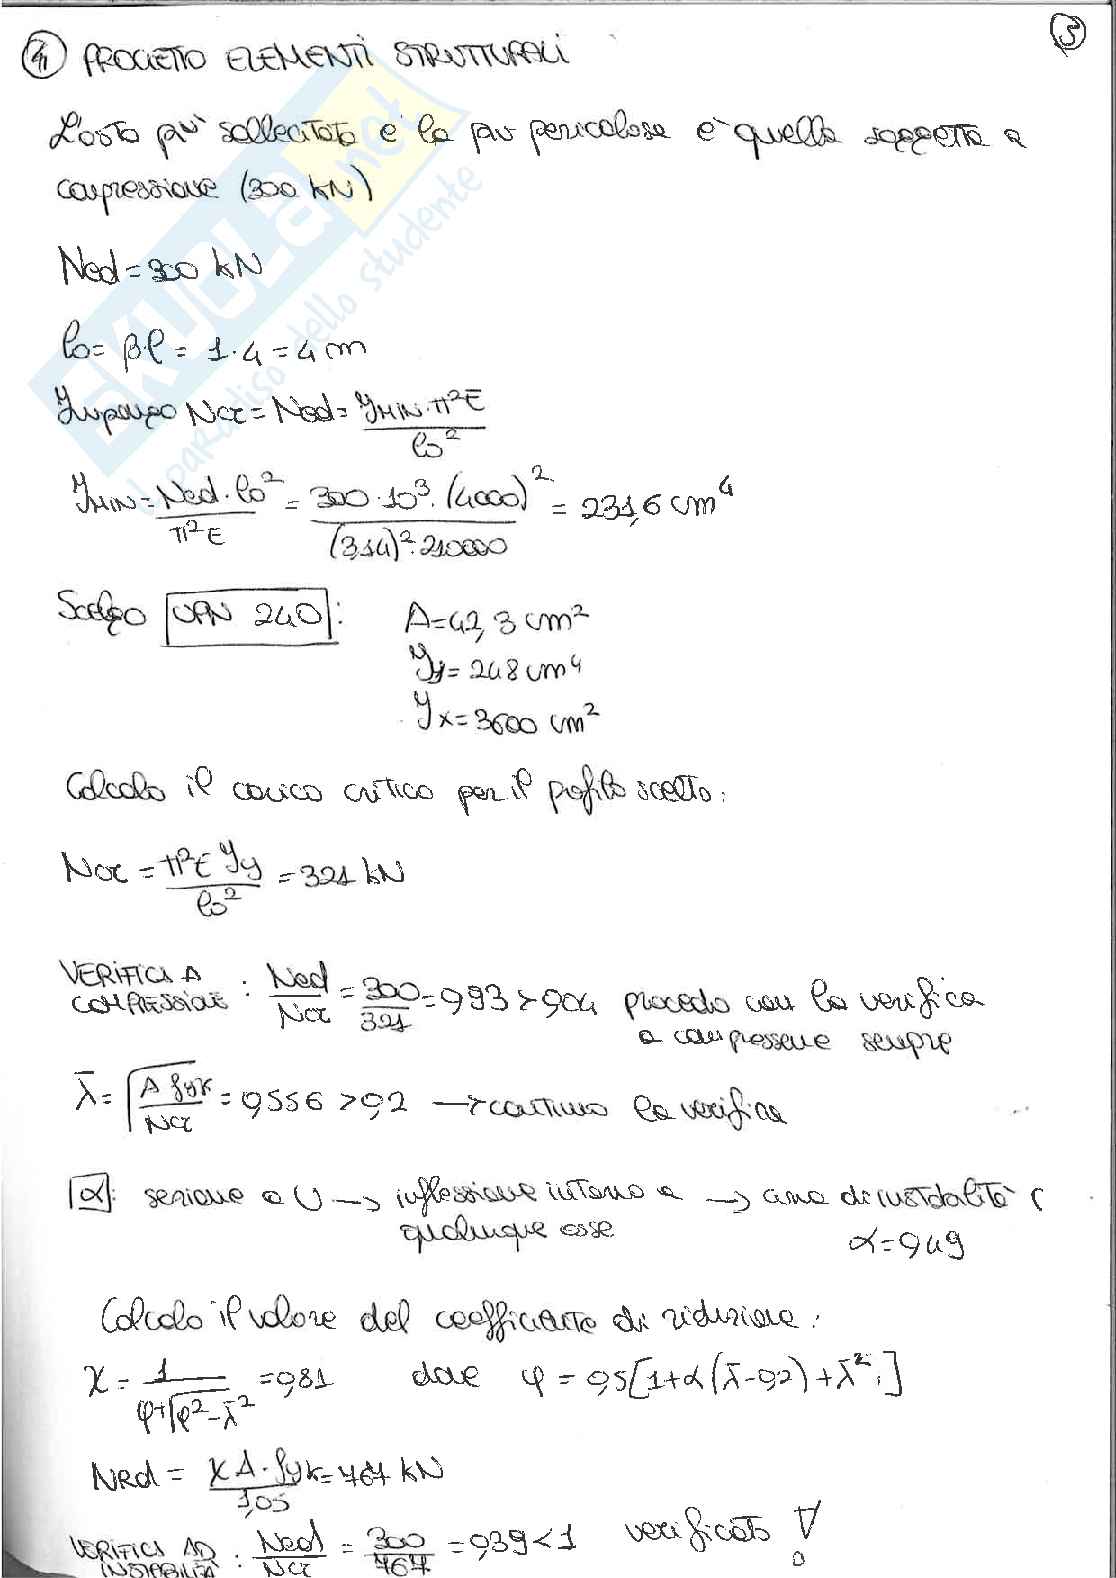 5
4 PROGETTO ELEMENTI STRUTTURALI
L'asta piu' sollecitata e la piu pericolosa e' quella soggetta a
compressione (300 kN)
Ned = 300 kN
lo = β·l = 1·4 = 4 m
Impongo Ncr = Ned = JMIN·π²E / lo²
JMIN = Ned·lo² / π²E = 300·10³·(4000)² / (3,14)²·210000 = 231,6 cm⁴
Scelgo UPN 240 : A = 42,3 cm²
Jy = 248 cm⁴
Jx = 3600 cm²
Calcolo il carico critico per il profilo scelto:
Ncr = π²E Jy / lo² = 321 kN
VERIFICA A COMPRESSIONE : Ned / Ncr = 300 / 321 = 0,93 > 0,04 procedo con la verifica
a compressione sempre
λ̄ = √(A fyk / Ncr) = 0,556 > 0,2 → continuo la verifica
α : sezione a U → inflessione intorno a → curva di instabilità c
qualunque asse α = 0,49
Calcolo il valore del coefficiente di riduzione:
χ = 1 / φ+√φ²-λ̄² = 0,81 dove φ = 0,5[1+α(λ̄-0,2)+λ̄²]
NRd = χ A·fyk / 1,05 = 767 kN
VERIFICA AD INSTABILITÀ : Ned / Ncr = 300 / 767 = 0,39 < 1 verificato !
SKUOLA.net
il paradiso dello studente